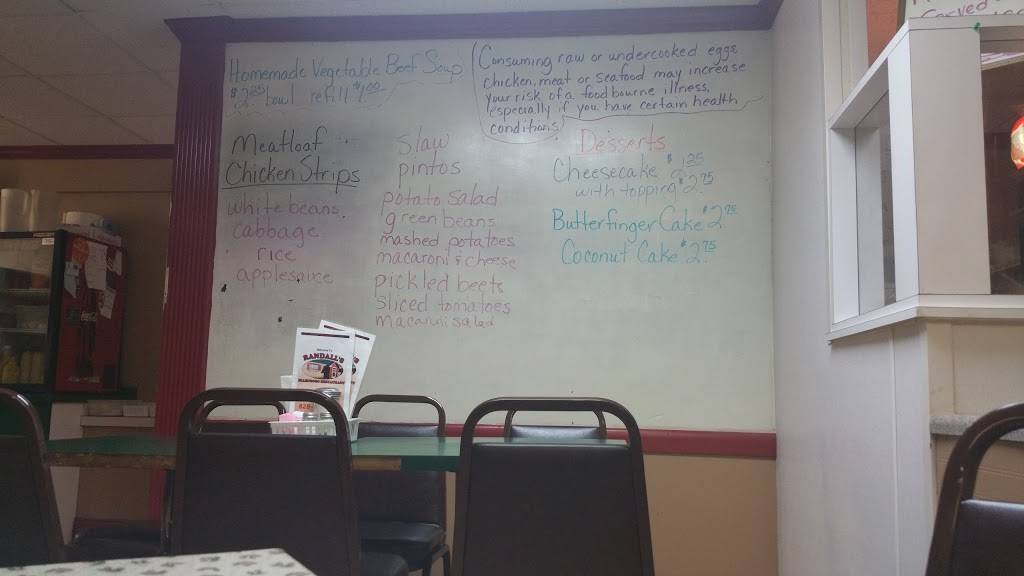 Homemade Vegetable Beef Soup
$2.25 bowl refill $1.00
Consuming raw or undercooked eggs
chicken, meat or seafood may increase
your risk of a foodbourne illness,
especially if you have certain health
conditions!
Meatloaf
Chicken Strips
white beans
cabbage
rice
applesauce
Slaw
pintos
potato salad
green beans
mashed potatoes
macaroni & cheese
pickled beets
sliced tomatoes
macaroni salad
Desserts
Cheesecake
with topping $2.75
Butterfinger Cake $2.75
Coconut Cake $2.75
RANDALL'S
828